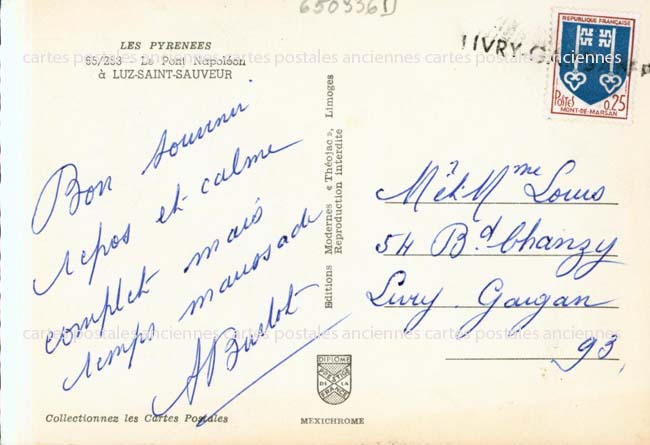 6509936D
cartes postales anciennes cartes postales anciennes cartes postales anciennes
LES PYRENEES
65/253 - Le Pont Napoléon
à LUZ-SAINT-SAUVEUR
LIVRY-GARGAN
REPUBLIQUE FRANÇAISE
POSTES
0,25
MONT-DE-MARSAN
Bon souvenir
repos et calme
complet mais
temps maussade
ABurlot
Editions Modernes « Théojac », Limoges
Reproduction Interdite
Mr et Mme Louis
54 Bd Chanzy
Livry-Gargan
93
cartes postales anciennes cartes postales anciennes cartes postales anciennes
DIPLOME
PRESTIGE
DE LA
FRANCE
Collectionnez les Cartes Postales
MEXICHROME